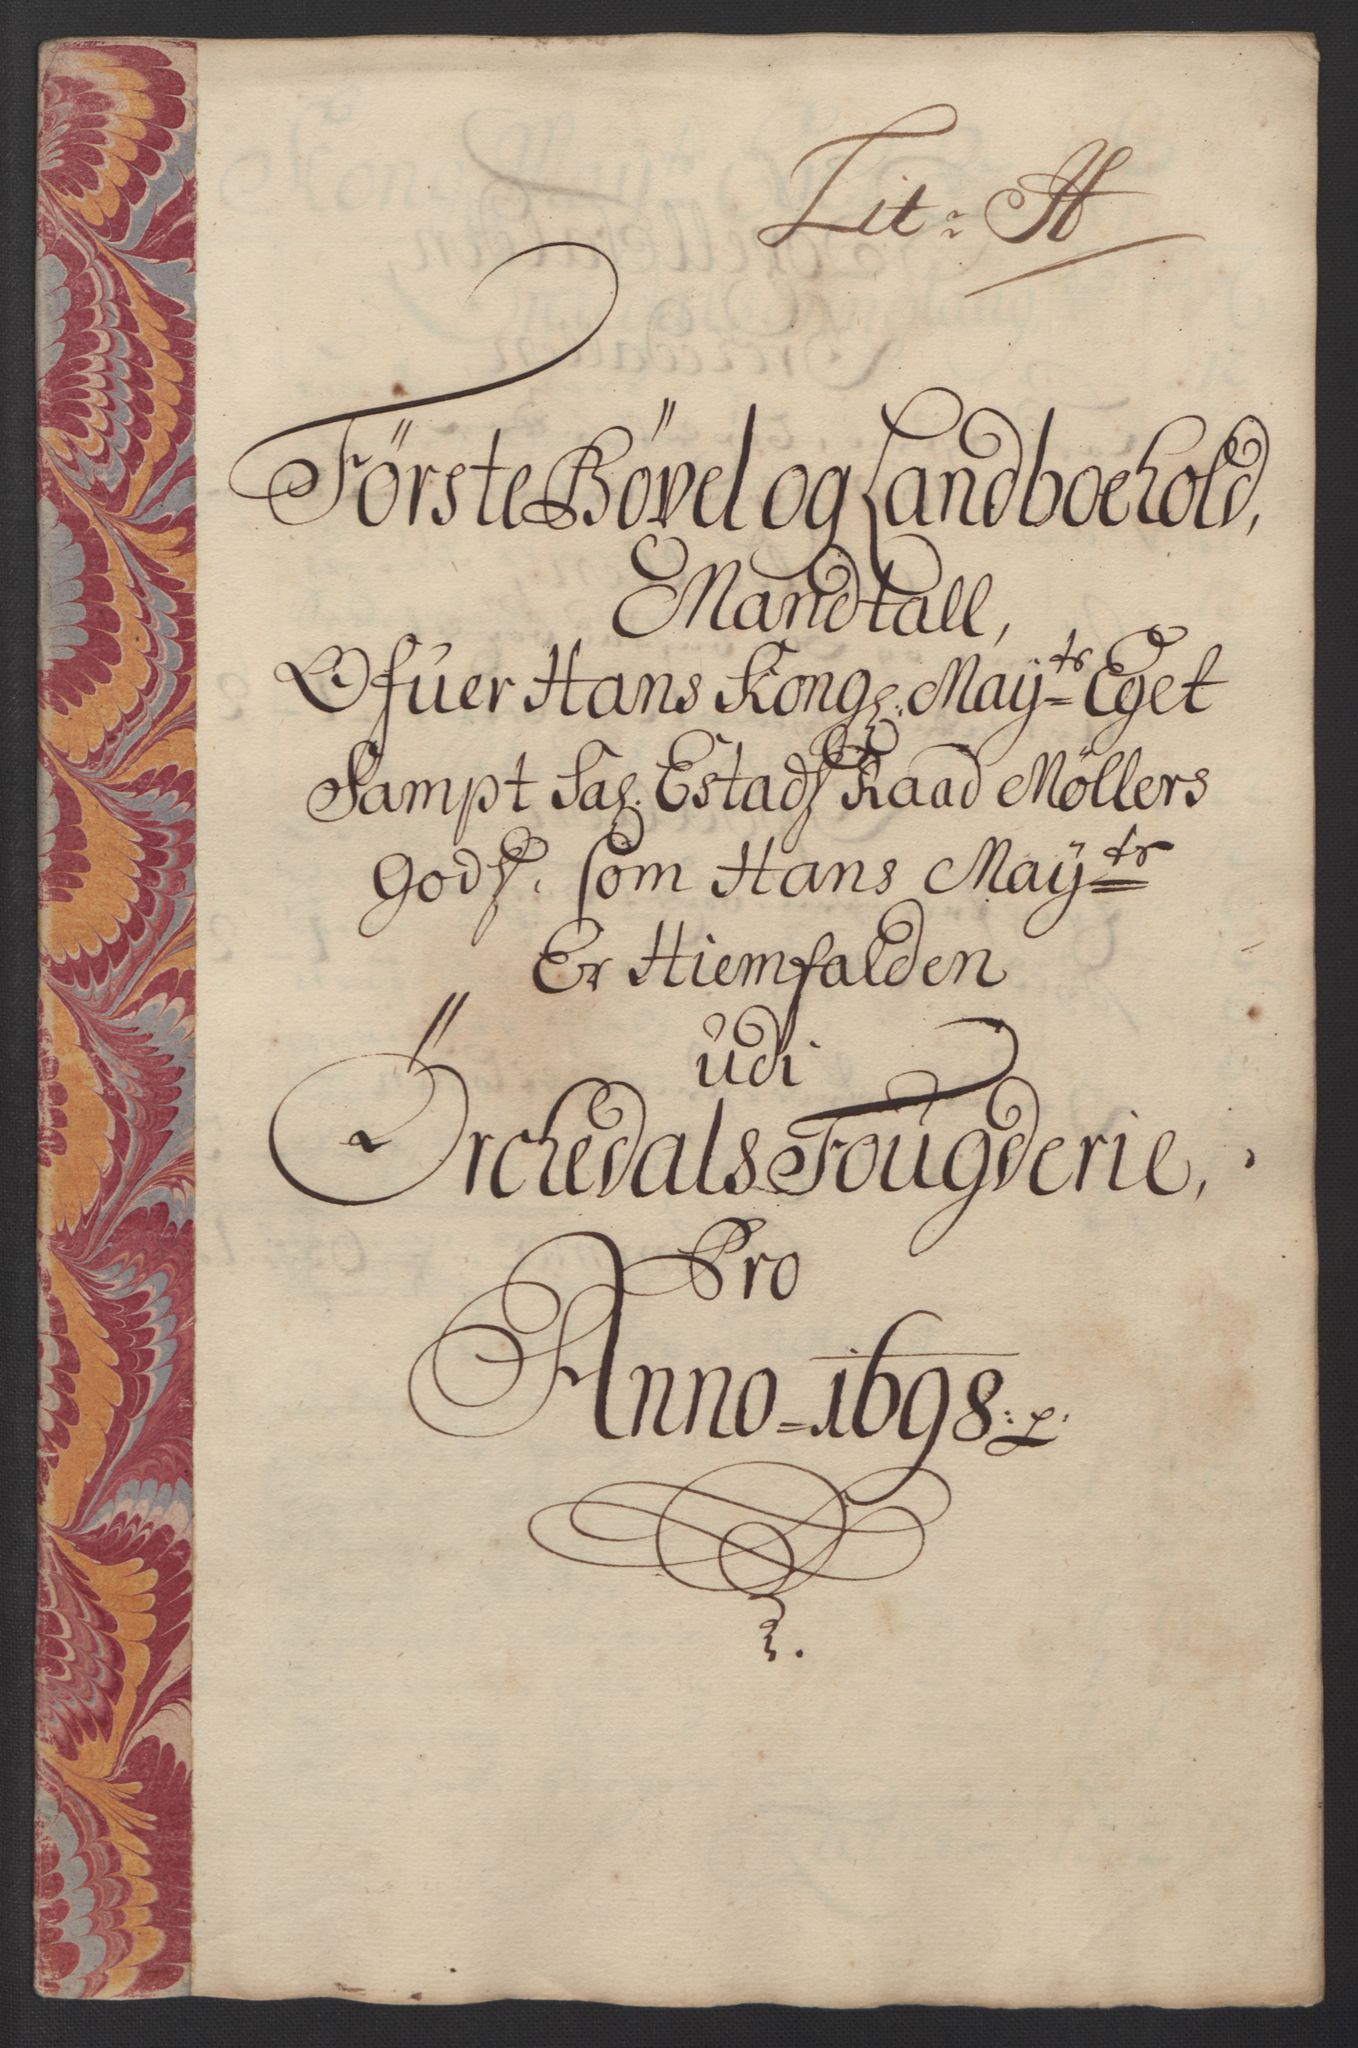 Lit: A
Förste Böxel og Landboehold,
Mandtall,
Ofuer Hans Kong: Maÿtz Eget
Sampt Sal. Estadß Raad Møllers
Godß. som Hans Maÿtz
Er Hiemfalden
udi
Örchedals Fougderie,
Pro
Anno = 1698